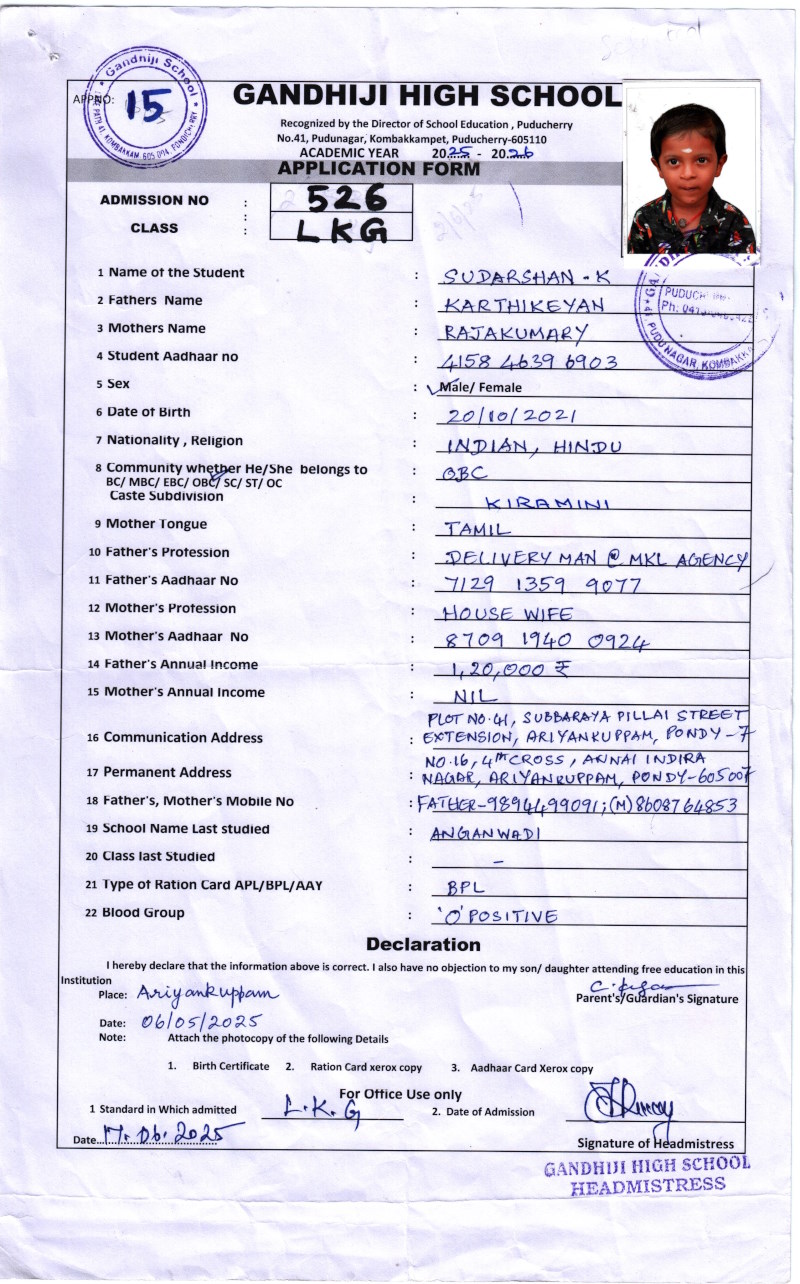 Gandhiji School
APPNO: 15
GANDHIJI HIGH SCHOOL
Recognized by the Director of School Education , Puducherry
No.41, Pudunagar, Kombakkampet, Puducherry-605110
ACADEMIC YEAR 2025 - 2026
APPLICATION FORM
ADMISSION NO : 526
CLASS : LKG
1 Name of the Student : SUDARSHAN - K
2 Fathers Name : KARTHIKEYAN
3 Mothers Name : RAJAKUMARY
4 Student Aadhaar no : 4158 4639 6903
5 Sex : ✓Male/ Female
6 Date of Birth : 20/10/2021
7 Nationality , Religion : INDIAN, HINDU
8 Community whether He/She belongs to : OBC
BC/ MBC/ EBC/ OBC/ SC/ ST/ OC
Caste Subdivision : KIRAMINI
9 Mother Tongue : TAMIL
10 Father's Profession : DELIVERY MAN @ MKL AGENCY
11 Father's Aadhaar No : 7129 1359 9077
12 Mother's Profession : HOUSE WIFE
13 Mother's Aadhaar No : 8709 1940 0924
14 Father's Annual Income : 1,20,000 ₹
15 Mother's Annual Income : NIL
PLOT NO. 41, SUBBARAYA PILLAI STREET
16 Communication Address : EXTENSION, ARIYANKUPPAM, PONDY-7
NO.16, 4th CROSS, ANNAI INDIRA
17 Permanent Address : NAGAR, ARIYANKUPPAM, PONDY-605007
18 Father's, Mother's Mobile No : FATHER-9894499091; (M) 8608764853
19 School Name Last studied : ANGANWADI
20 Class last Studied : -
21 Type of Ration Card APL/BPL/AAY : BPL
22 Blood Group : 'O' POSITIVE
Declaration
I hereby declare that the information above is correct. I also have no objection to my son/ daughter attending free education in this
Institution
Place: Ariyankuppam
Parent's/Guardian's Signature
Date: 06/05/2025
Note: Attach the photocopy of the following Details
1. Birth Certificate 2. Ration Card xerox copy 3. Aadhaar Card Xerox copy
For Office Use only
1 Standard in Which admitted L.K.G 2. Date of Admission
Date...17.06.2025
Signature of Headmistress
GANDHIJI HIGH SCHOOL
HEADMISTRESS